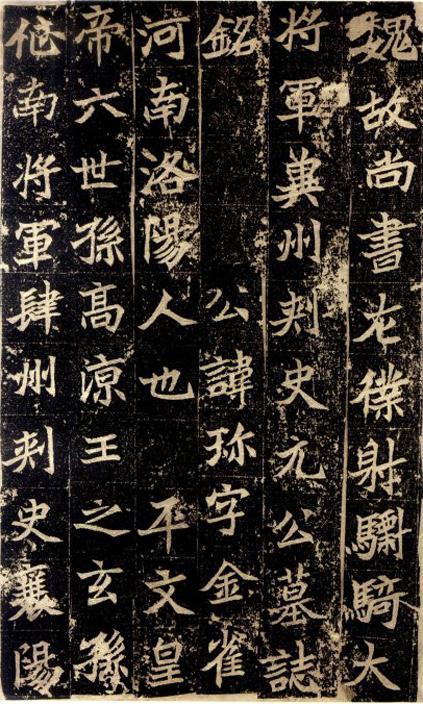 魏故尚書左僕射驃騎大
將軍冀州刺史元公墓誌
銘 公諱珎字金雀
河南洛陽人也 平文皇
帝六世孫高涼王之玄孫
征南將軍肆州刺史襄陽